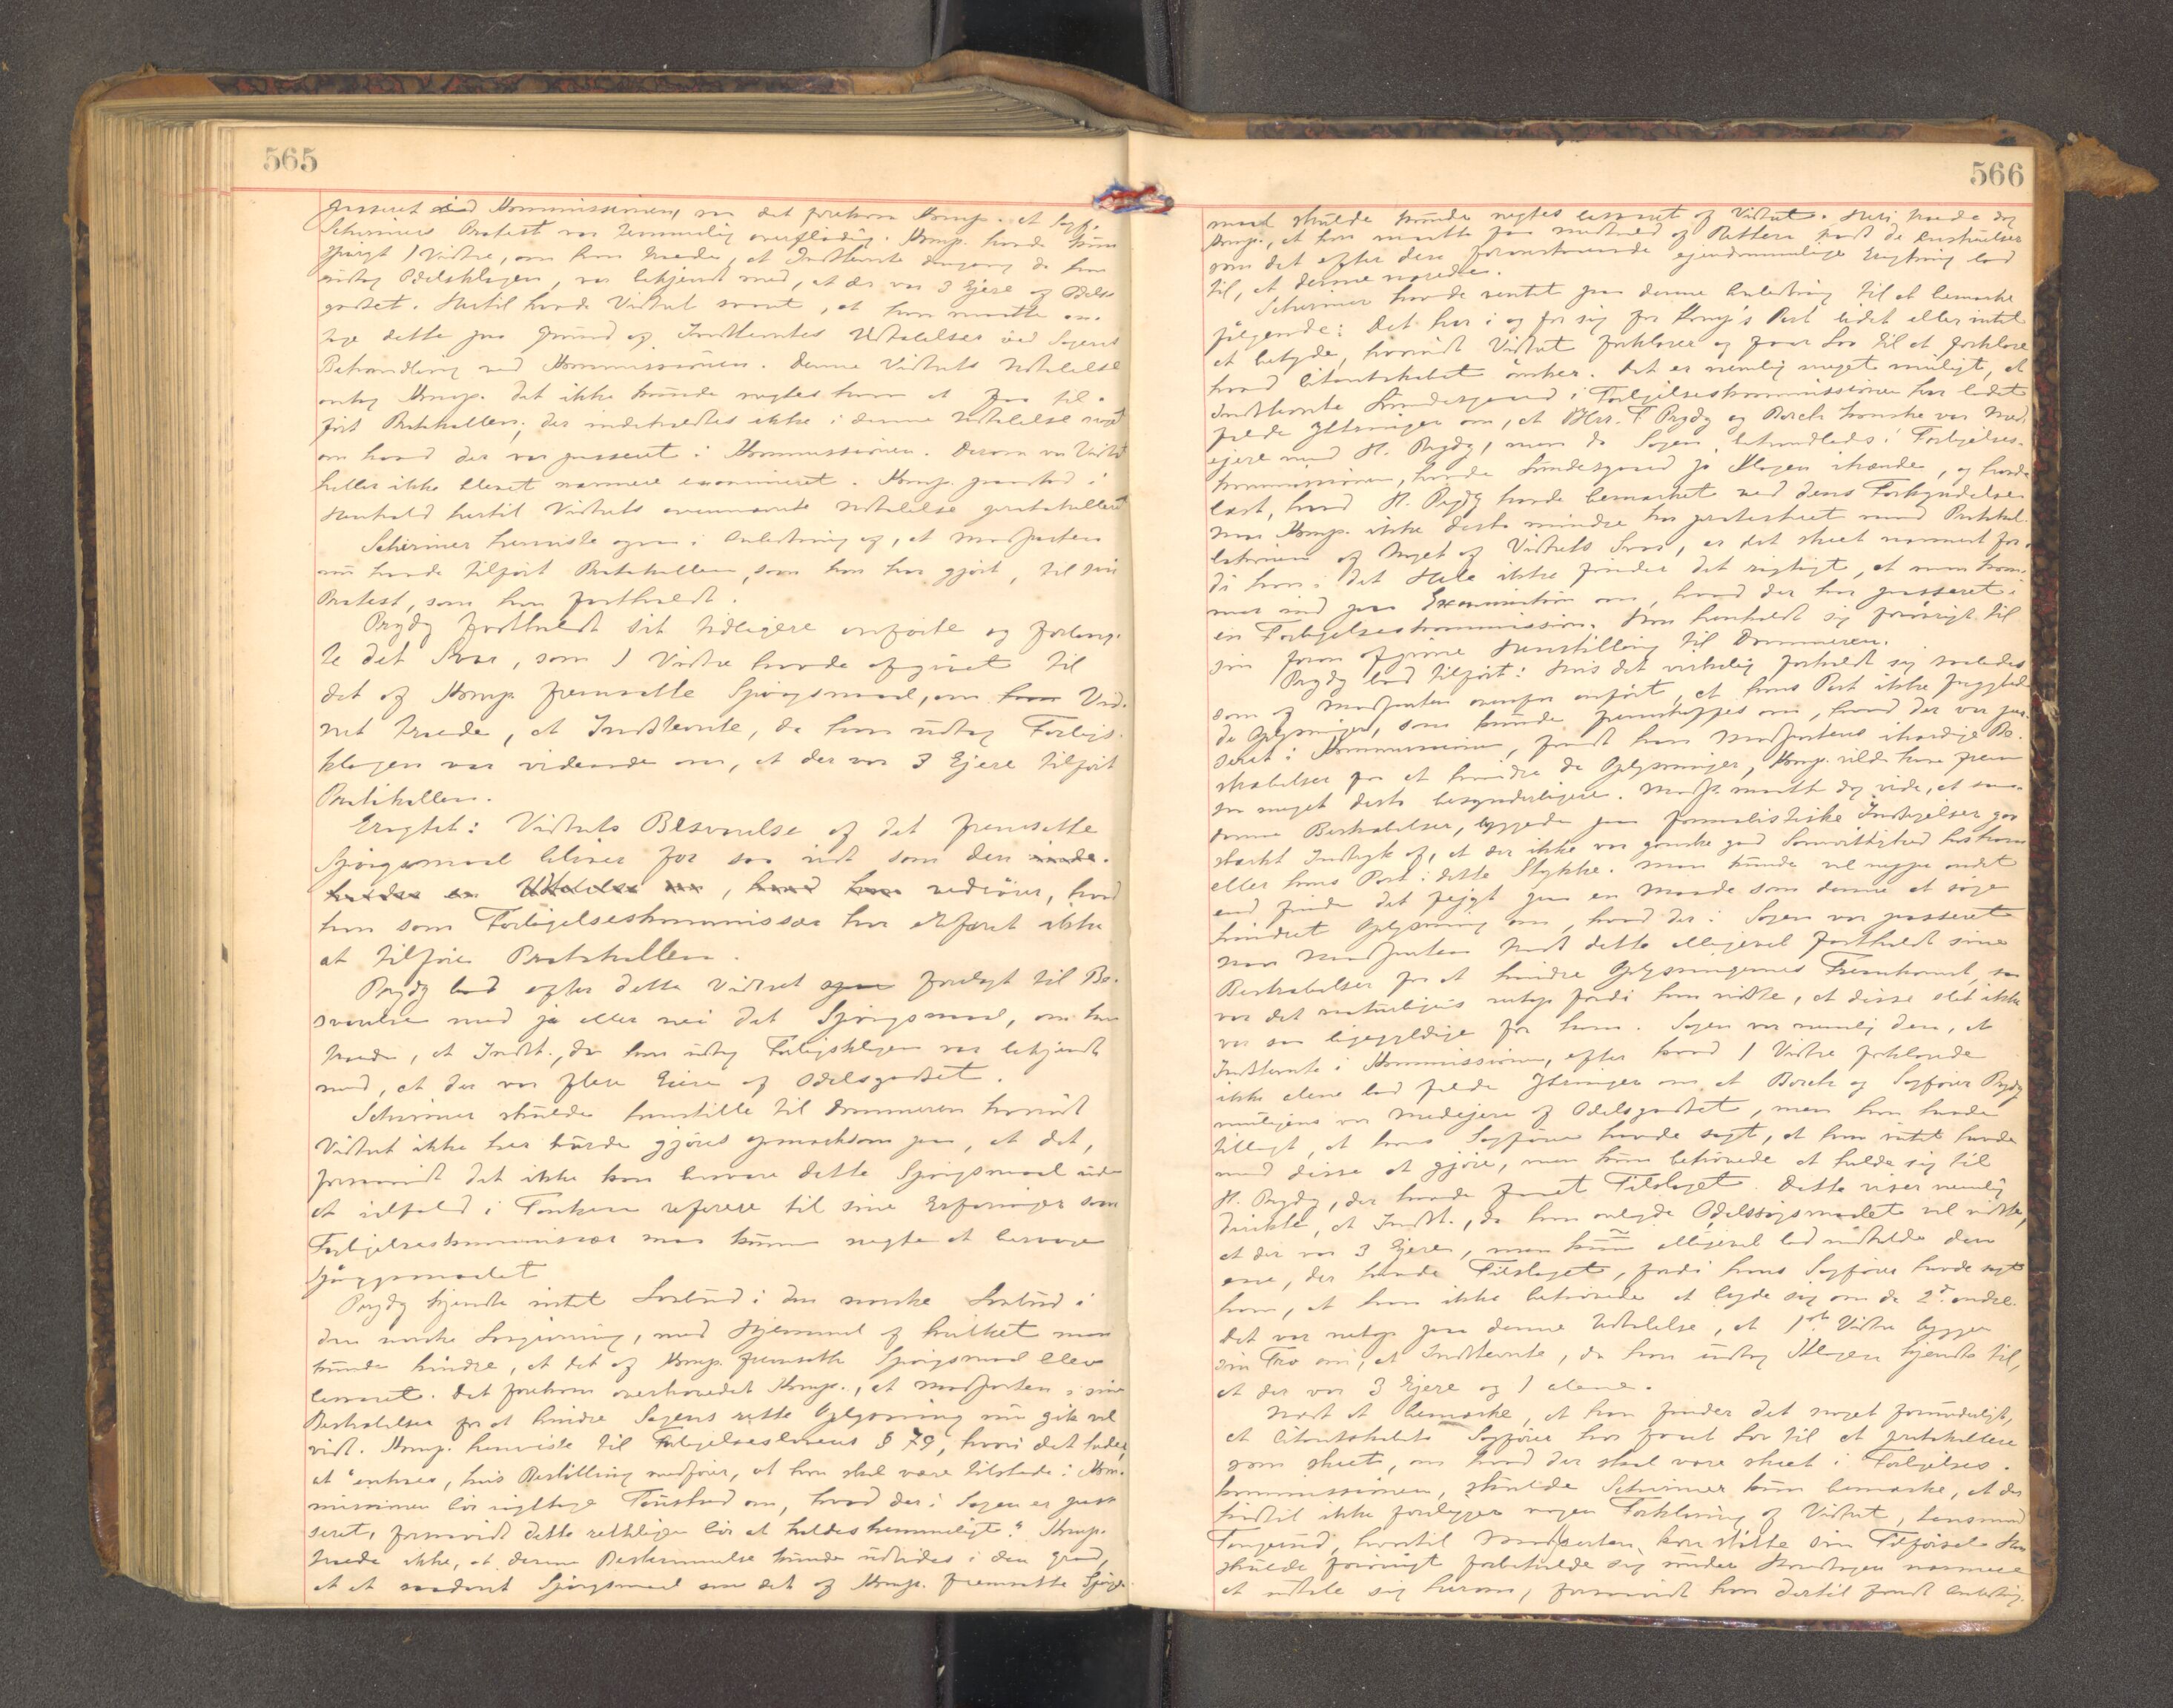 565
passeret ved Kommissionen, saa det forekom Komp. at Sagf.
Schirmers Protest var temmelig overflødig. Komp. havde kun
spurgt 1 Vidne, om han troede, at Indstevnte dengang da han
udtog Odelsklagen, var bekjendt med, at der var 3 Ejere af Odels
godset. Hertil havde Vidnet svaret, at han maatte an-
tage dette paa Grund af Indstevntes Udtalelser ved Sagens
Behandling ved Kommissionen. Denne Vidnets Udtalelse
antog Komp. det ikke kunde negtes ham at faa til-
ført Protokollen; der indeholdtes ikke i denne Udtalelse noget
om hvad der var passeret i Kommissionen. Derom var Vidnet
heller ikke blevet nærmere examineret. Komp. paastod i
Henhold hertil Vidnets ovennævnte Udtalelse protokolleret
Schirmer henviste ogsaa i Anledning af, at Modparten
nu havde tilført Protokollen, som han har gjort, til sin
Protest, som han fastholdt.
Prydz fastholdt sit tidligere anførte og forlang-
te det Svar, som 1 Vidne havde afgivet til
det af Komp. fremsatte Spørgsmaal, om Vid-
net troede, at Indstevnte, da han udtog Forligs-
klagen var vidende om, at der var 3 Ejere tilført
Protokollen.
Eragtet: Vidnets Besvarelse af det fremsatte
Spørgsmaal bliver for saa vidt som den inde-
holder en Udtalelse om, hvad han vedrører, hvad
han som Forligelseskommissær har erfaret ikke
at tilføre Protokollen.
Prydz lod efter dette Vidnet forelagt til Be-
svarelse med ja eller nei det Spørgsmaal, om han
troede, at Indst., da han udtog Forligsklagen var bekjendt
med, at der var flere Eiere af Odelsgodset.
Schirmer skulde henstille til Dommeren hvorvidt
Vidnet ikke her burde gjøres opmærksom paa, at det,
forsaavidt det ikke kan besvare dette Spørgsmaal uden
at ialfald i Tanken referere til sine Erfaringer som
Forligelseskommissær maa kunne negte at besvare
Spørgsmaalet
Prydz kjendte intet Lovbud i den norske Lovbud i
den norske Lovgivning, med Hjemmel af hvilket man
kunde hindre, at det af Komp. fremsatte Spørgsmaal blev
besvaret. Det forekom overhovedet Komp., at Modparten i sine
Bestræbelser for at hindre Sagens rette Oplysning nu gik vel
vidt. Komp. henviste til Forligelseslovens § 79, hvori det heder,
at "enhver, hvis Bestilling medfører, at han skal være tilstede i Kom-
missionen bør iagttage Taushed om, hvad der i Sagen er pas-
seret, forsaavidt dette retteligen bør at holdes hemmeligt." Komp.
troede ikke, at denne Bestemmelse kunde udtydes i den Grad,
at et saadant Spørgsmaal som det af Komp. fremsatte Spørgs-
566
maal skulde kunde negtes besvaret af Vidnet. Heri troede dog
Komp., at han maatte faa Medhold af Retten trods de Anskuelser
som det efter den foranstaaende ejendommelige Eragtning lod
til, at denne nærede.
Schirmer havde ventet paa denne Anledning til at bemærke
følgende: Det har i og for sig for Komp's Part lidet eller intet
at betyde, hvorvidt Vidnet forklarer og faar Lov til at forklare
hvad Citantskabet ønsker. Det er nemlig meget muligt, at
Indstevnte Sundesgaard i Forligelseskommissionen har ladet
falde Yttringer om, at Hrr. F Prydz og Borch kanske var Med-
ejere med H. Prydz, men da Sagen behandledes i Forligelses-
kommissionen, havde Sundesgaard jo Klagen ihænde, og havde
læst, hvad H. Prydz havde bemærket ved dens Forkyndelse.
Naar Komp. ikke desto mindre har protesteret mod Protokol-
lationen af Noget af Vidnets Svar, er det skeet nærmest for-
di han i det Hele ikke finder det rigtigt, at man kom-
mer ind paa Examination om, hvad der har passeret i
en Forligelseskommission. Han henholdt sig forøvrigt til
sin foran afgivne Henstilling til Dommeren.
Prydz lod tilført: Hvis det virkelig forholdt sig saaledes
som af Modparten ovenfor anført, at hans Part ikke frygtede
de Oplysninger, som kunde fremskaffes om, hvad der var pas-
seret i Kommissionen, fandt han Modpartens ihærdige Be-
stræbelser for at hindre de Oplysninger, Komp. vilde have frem
saa meget desto besynderligere. Modp. maatte dog vide, at saa-
danne Bestræbelser, byggede paa formalistiske Indsigelser gav
stærkt Indtryk af, at der ikke var ganske god Samvittighed hos ham
eller hans Part i dette Stykke. Man kunde vel neppe andet
end finde det fejgt paa en Maade som denne at søge
hindret Oplysning om, hvad der i Sagen var passeret
Naar Modparten trods dette alligevel fastholdt sine
Bestræbelser for at hindre Oplysningernes Fremkomst, saa
var det naturligvis netop fordi han vidste, at disse slet ikke
var saa ligegyldige for ham. Sagen var nemlig den, at
Indstevnte i Kommissionen, efter hvad 1 Vidne forklarede
ikke alene lod falde Ytringer om, at Borch og Sagfører Prydz
muligens var Medejere af Odelsgodset, men han havde
tillagt, at hans Sagfører havde sagt, at han intet havde
med disse at gjøre, men kun behøvede at holde sig til
H. Prydz, der havde faaet Tilslaget. Dette viser nemlig
direkte, at Indst., da han anlagde Odelssøgsmaalet vel vidste,
at der var 3 Ejere, men kun alligevel lod indkalde den
ene, der havde Tilslaget, fordi hans Sagfører havde sagt
ham, at han ikke behøvede at bryde sig om de 2de andre.
Det var netop paa denne Udtalelse, at 1ste Vidne bygger
sin Tro om, at Indstevnte, da han udtog Klagen kjendte til,
at der var 3 Ejere og 1 alene.
Næst at bemærke, at han finder det noget forunderligt,
at Citantskabets Sagfører har faaet Lov til at protokollere
som skeet, om hvad der skal være skeet i Forligelses-
kommissionen, skulde Schirmer kun bemærke, at der
hidtil ikke foreligger nogen Forklaring af Vidnet, Lensmand
Tangerud, hvortil Modparten kan støtte sin Tilførsel. Han
skulde forøvrigt forbeholde sig under Hovedsagen nærmere
at udtale sig herom, forsaavidt han dertil fandt Anledning.